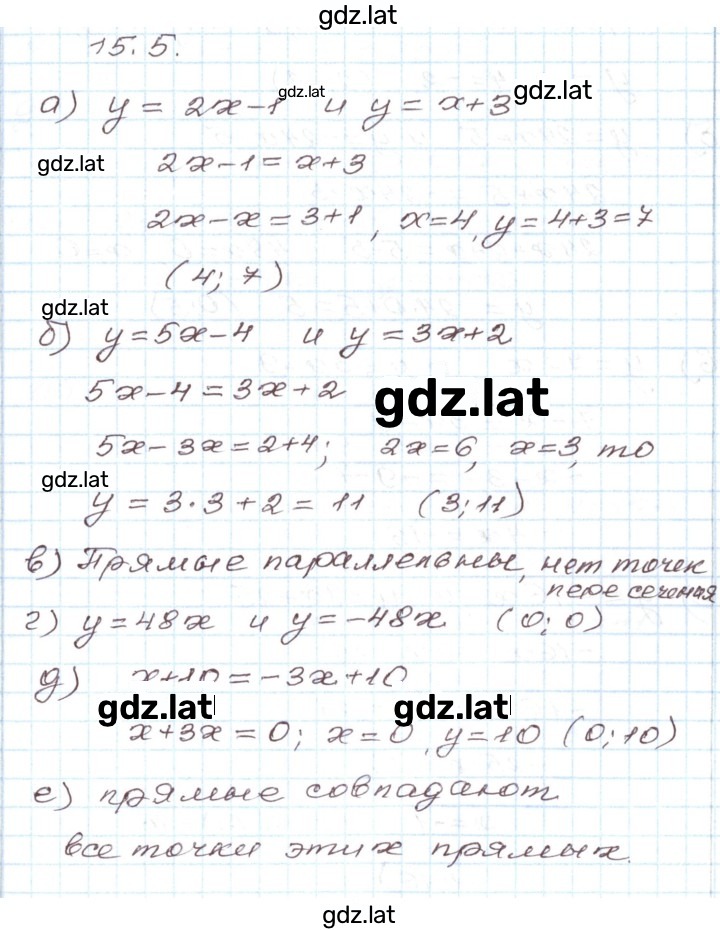 gdz.lat
15.5.
а) y = 2x-1 и y = x+3
gdz.lat gdz.lat
gdz.lat 2x-1 = x+3
2x-x = 3+1, x=4, y=4+3=7
(4; 7)
gdz.lat
б) y=5x-4 и y=3x+2
5x-4=3x+2 gdz.lat
5x-3x=2+4; 2x=6, x=3, то
gdz.lat
y = 3·3+2 = 11 (3;11)
в) Прямые параллельны, нет точек
пересечения
г) y=48x и y=-48x (0; 0)
д) x+10=-3x+10
gdz.lat gdz.lat
x+3x=0; x=0, y=10 (0;10)
е) прямые совпадают
все точки этих прямых.
gdz.lat